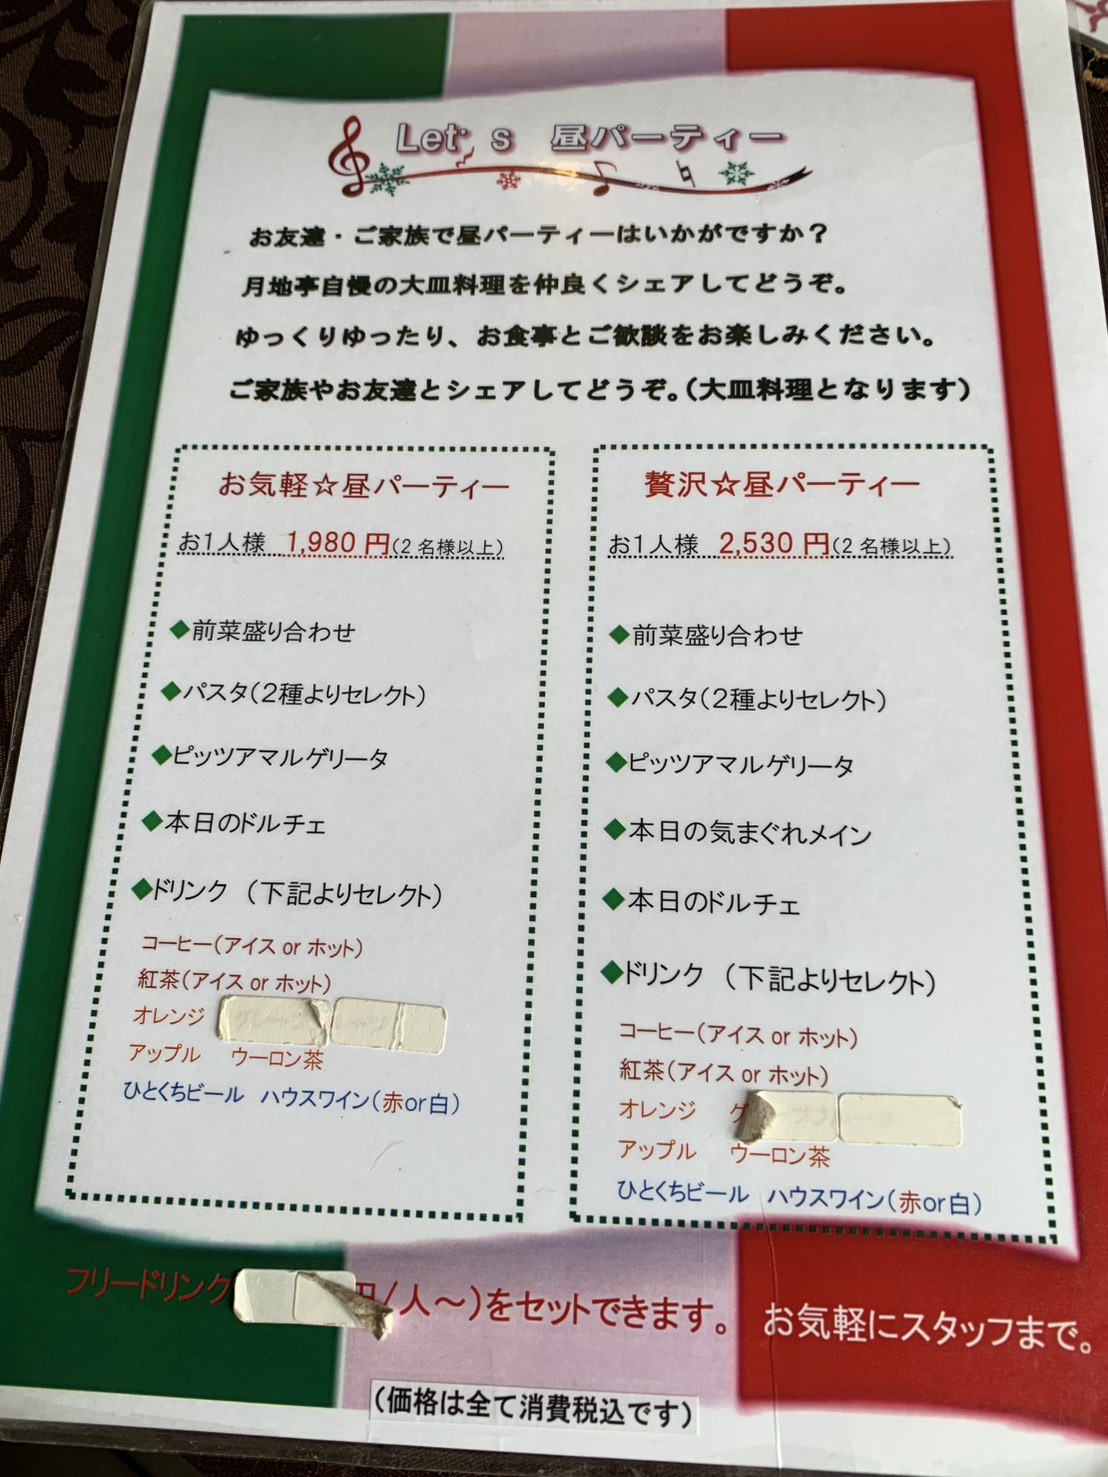 Let's 昼パーティー
お友達・ご家族で昼パーティーはいかがですか？
月地亭自慢の大皿料理を仲良くシェアしてどうぞ。
ゆっくりゆったり、お食事とご歓談をお楽しみください。
ご家族やお友達とシェアしてどうぞ。（大皿料理となります）
お気軽☆昼パーティー
お1人様 1,980 円（2 名様以上）
◆前菜盛り合わせ
◆パスタ（2種よりセレクト）
◆ピッツアマルゲリータ
◆本日のドルチェ
◆ドリンク （下記よりセレクト）
コーヒー（アイス or ホット）
紅茶（アイス or ホット）
オレンジ
アップル ウーロン茶
ひとくちビール ハウスワイン（赤or白）
贅沢☆昼パーティー
お1人様 2,530 円（2 名様以上）
◆前菜盛り合わせ
◆パスタ（2種よりセレクト）
◆ピッツアマルゲリータ
◆本日の気まぐれメイン
◆本日のドルチェ
◆ドリンク （下記よりセレクト）
コーヒー（アイス or ホット）
紅茶（アイス or ホット）
オレンジ
アップル ウーロン茶
ひとくちビール ハウスワイン（赤or白）
フリードリンク 円/人～）をセットできます。 お気軽にスタッフまで。
（価格は全て消費税込です）